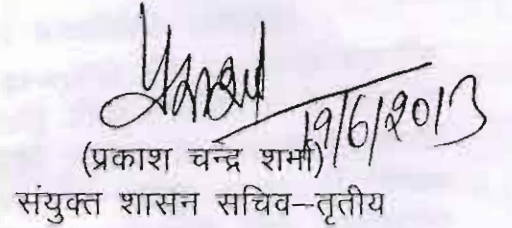 19/6/2013
(प्रकाश चन्द्र शर्मा)
संयुक्त शासन सचिव–तृतीय